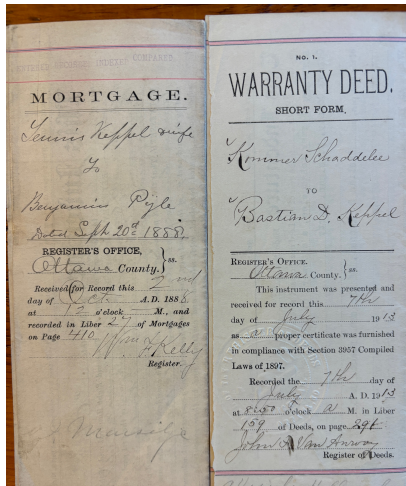 ENTERED COMPARED
MORTGAGE.
Teunis Keppel & wife
To
Benjamin Pyle
Dated Sept. 20d 1888
REGISTER'S OFFICE,
Ottawa County. } ss.
Received for Record this 2nd
day of Oct. A.D. 1888
at 12 o'clock M., and
recorded in Liber 27 of Mortgages
on Page 410
Wm F Kelly
Register.
No. 1.
WARRANTY DEED.
SHORT FORM.
Kommer Schaddelee
TO
Bastian D. Keppel
REGISTER'S OFFICE.
Ottawa County. } ss.
This instrument was presented and
received for record this 7th
day of July 1913
as a proper certificate was furnished
in compliance with Section 3957 Compiled
Laws of 1897.
Recorded the 7th day of
July A. D. 1913
at 8:50 o'clock a M. in Liber
159 of Deeds, on page
John A Van Anrooy
Register of Deeds.